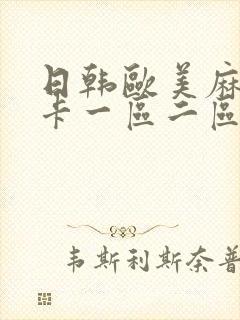 日韩歐美麻
卡一區二區
韦斯利斯奈普